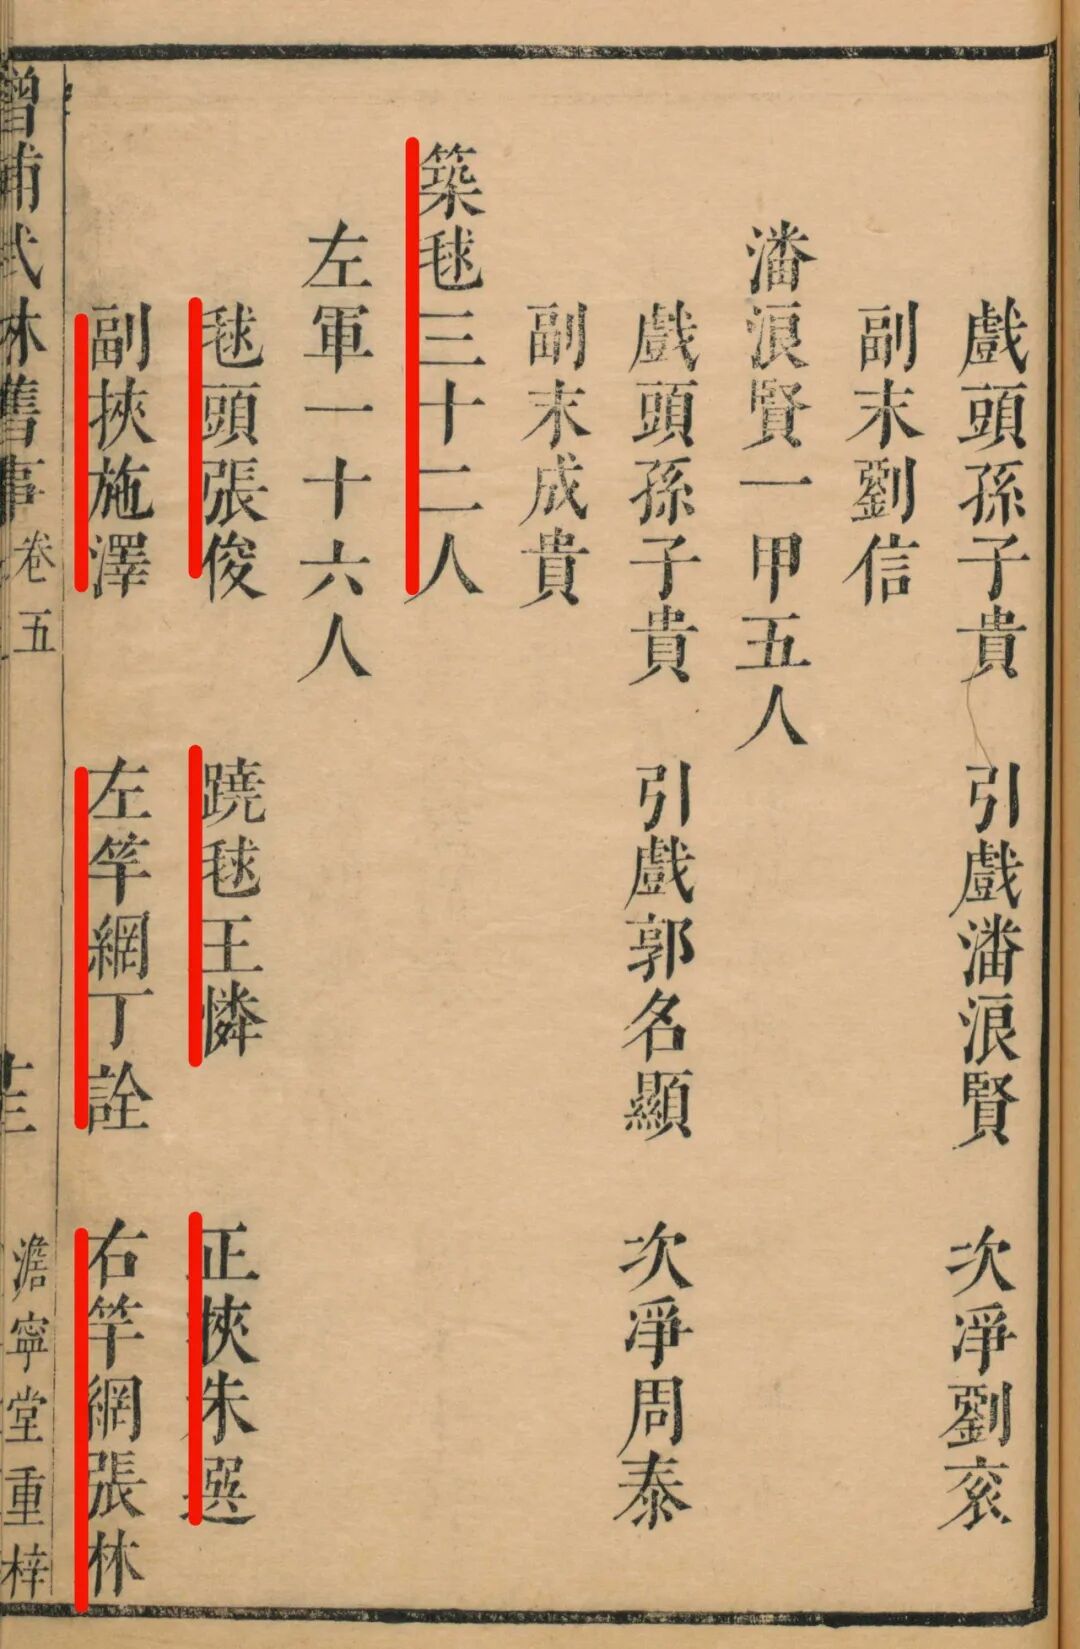 戲頭孫子貴　引戲潘浪賢　次淨劉衮
副末劉信
潘浪賢一甲五人
戲頭孫子貴　引戲郭名顯　次淨周泰
副末成貴
築毬三十二人
左軍一十六人
毬頭張俊　蹺毬王憐　正挾朱選
副挾施澤　左竿網丁詮　右竿網張林
增補武林舊事　卷五　澹寧堂重梓